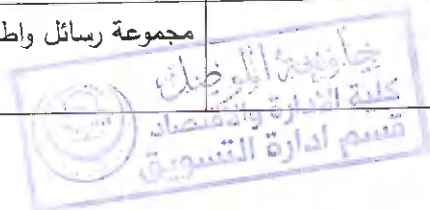 مجموعة رسائل واط
جامعة الموصل
كلية الادارة والاقتصاد
قسم ادارة التسويق